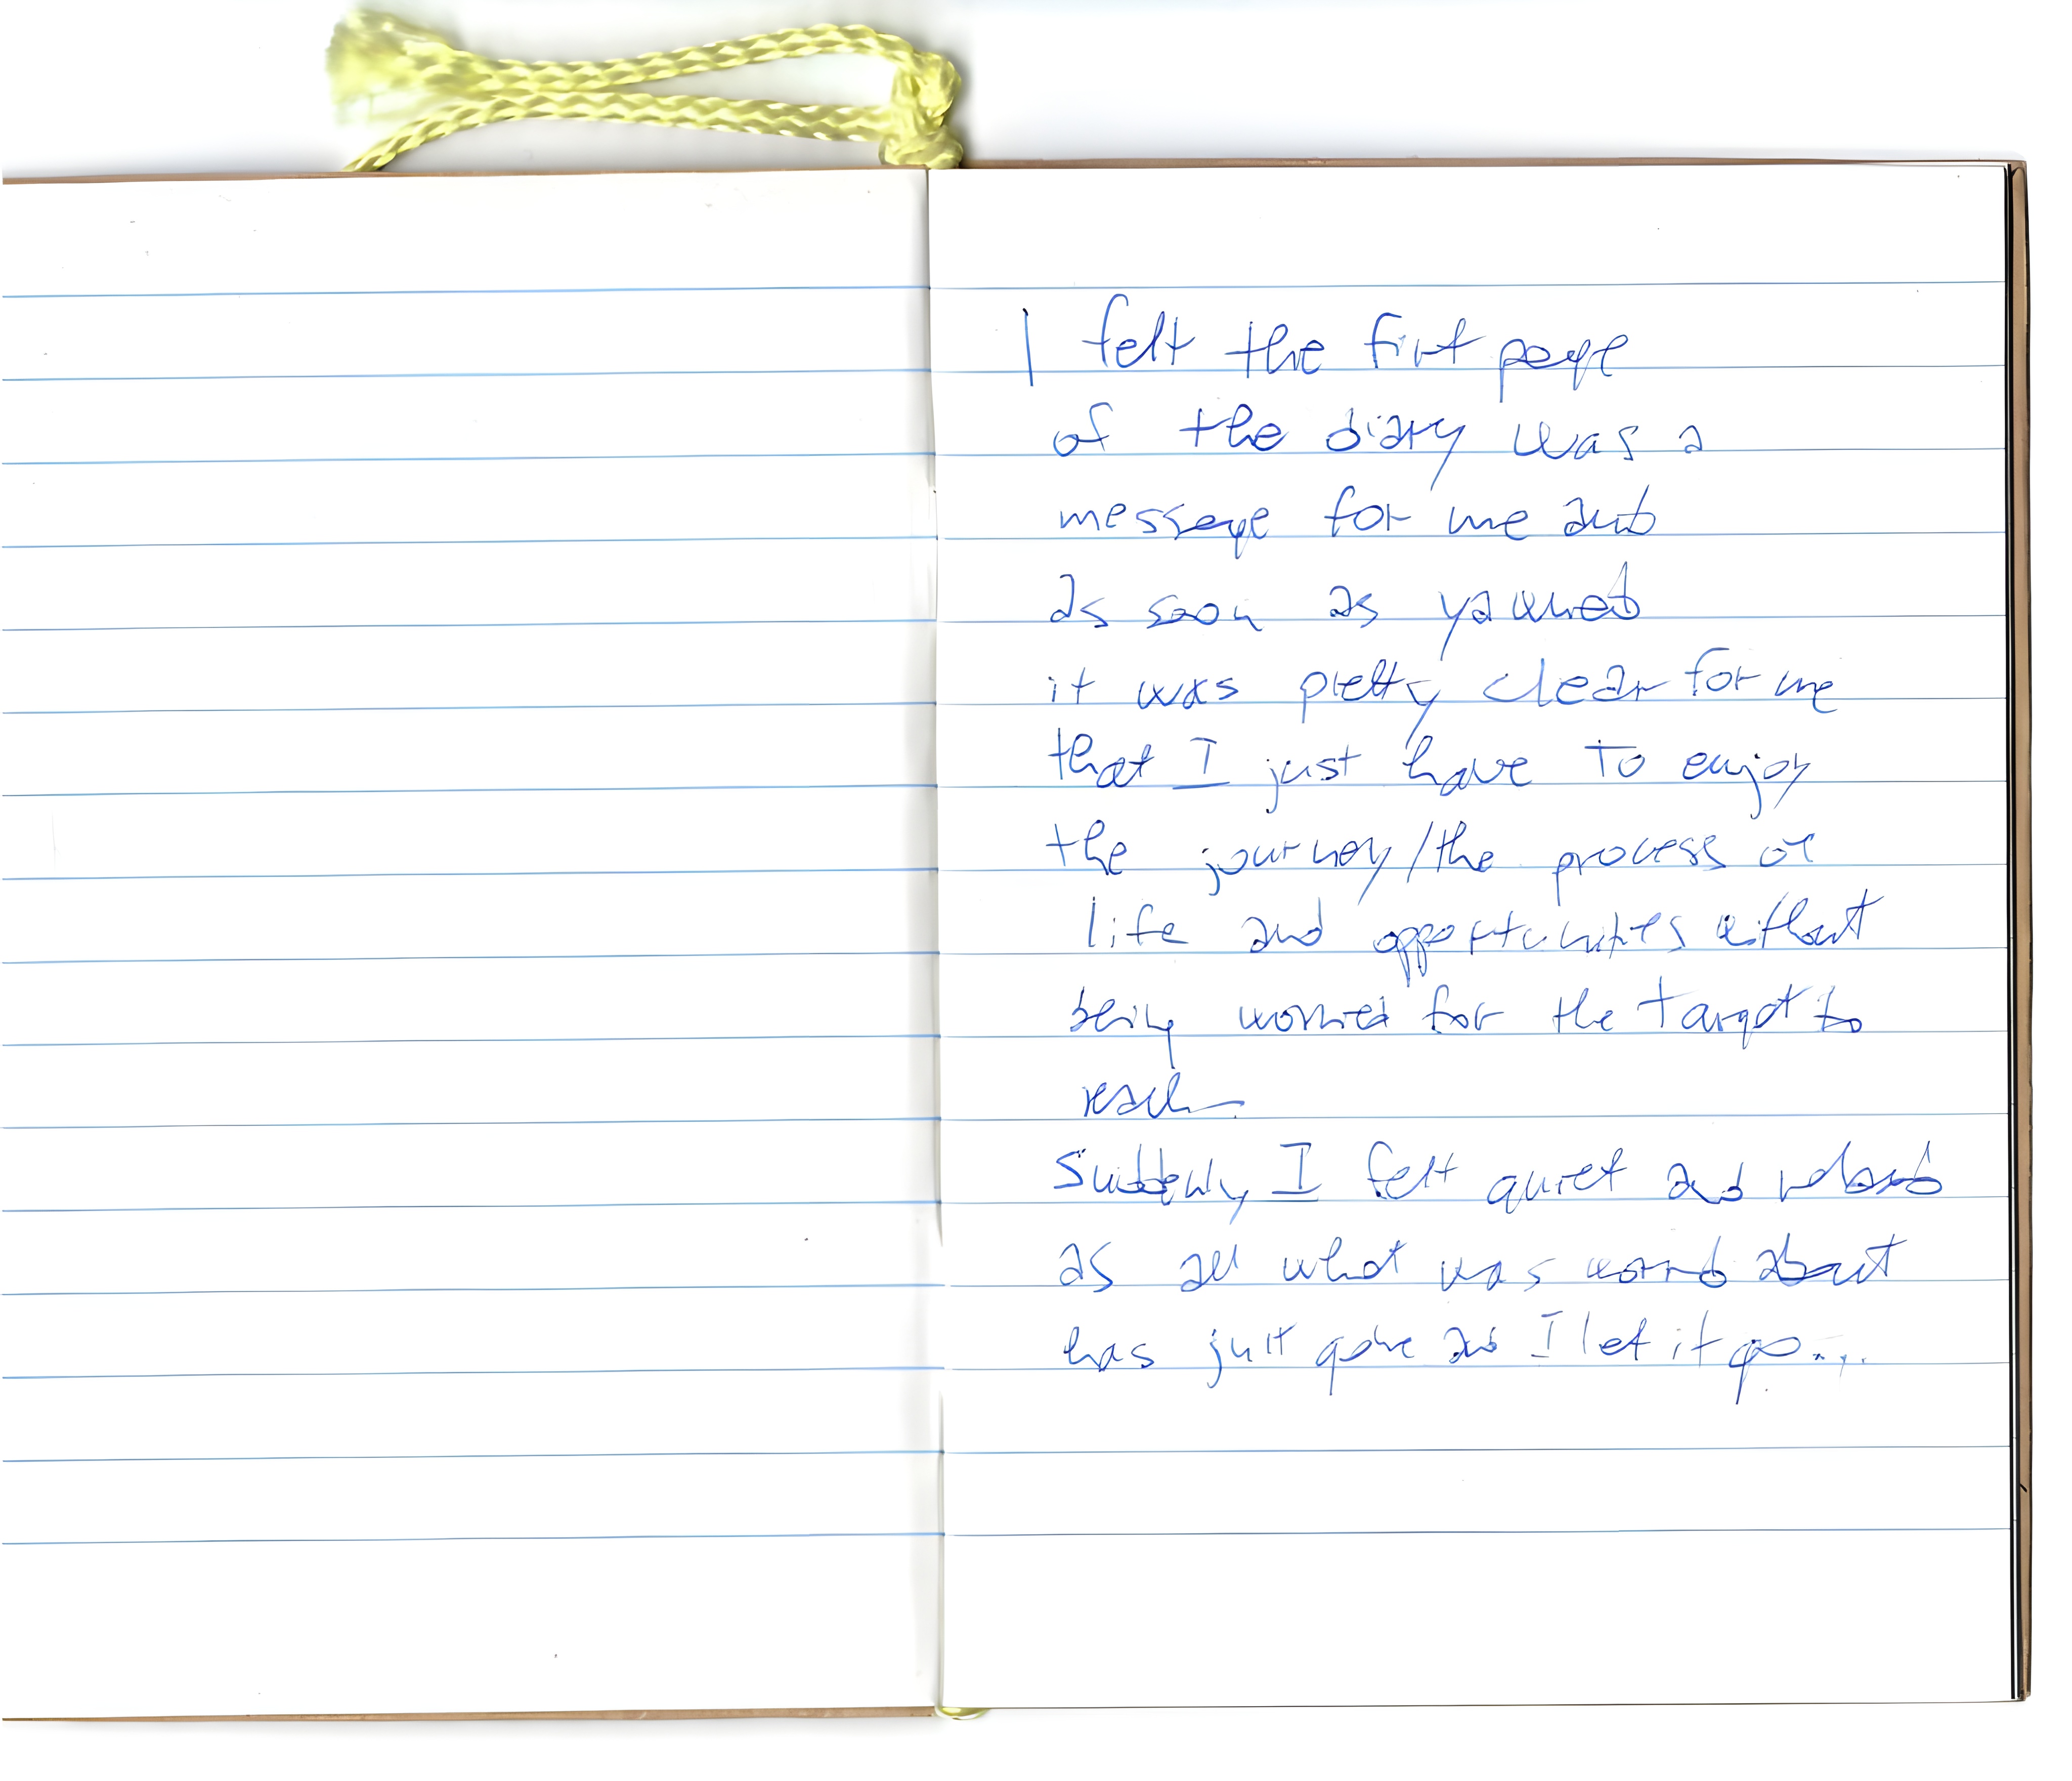 I felt the first page
of the diary was a
message for me and
as soon as yawned
it was pretty clear for me
that I just have to enjoy
the journey/the process of
life and opportunities without
being worried for the target to
reach.
Suddenly I felt quiet and relaxed
as all what was worried about
has just gone as I let it go....